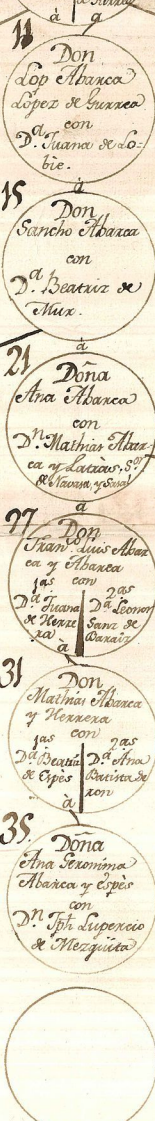 de Gurrea
à a
11
Don
Lop Abarca
Lopez de Gurrea
con
D.ª Juana de Lo-
bie.
à
15
Don
Sancho Abarca
con
D.ª Beatriz de
Mur.
à
21
Doña
Ana Abarca
con
D.n Mathias Abar-
ca y Latràs, s.or
de Navasa, y Sasal
à
27
Don
Fran.co Luis Abar
ca y Abarca
con
1as 2as
D.ª Juana D.ª Leonor
de Herre Sanz de
ra
à
31
Don
Mathias Abarca
y Herrera
con
1as 2as
D.ª Beatriz D.ª Ana
de Espès Batista de
ron
à
35.
Doña
Ana Geronima
Abarca y Espès
con
D.n Jph Lupercio
de Mezquita